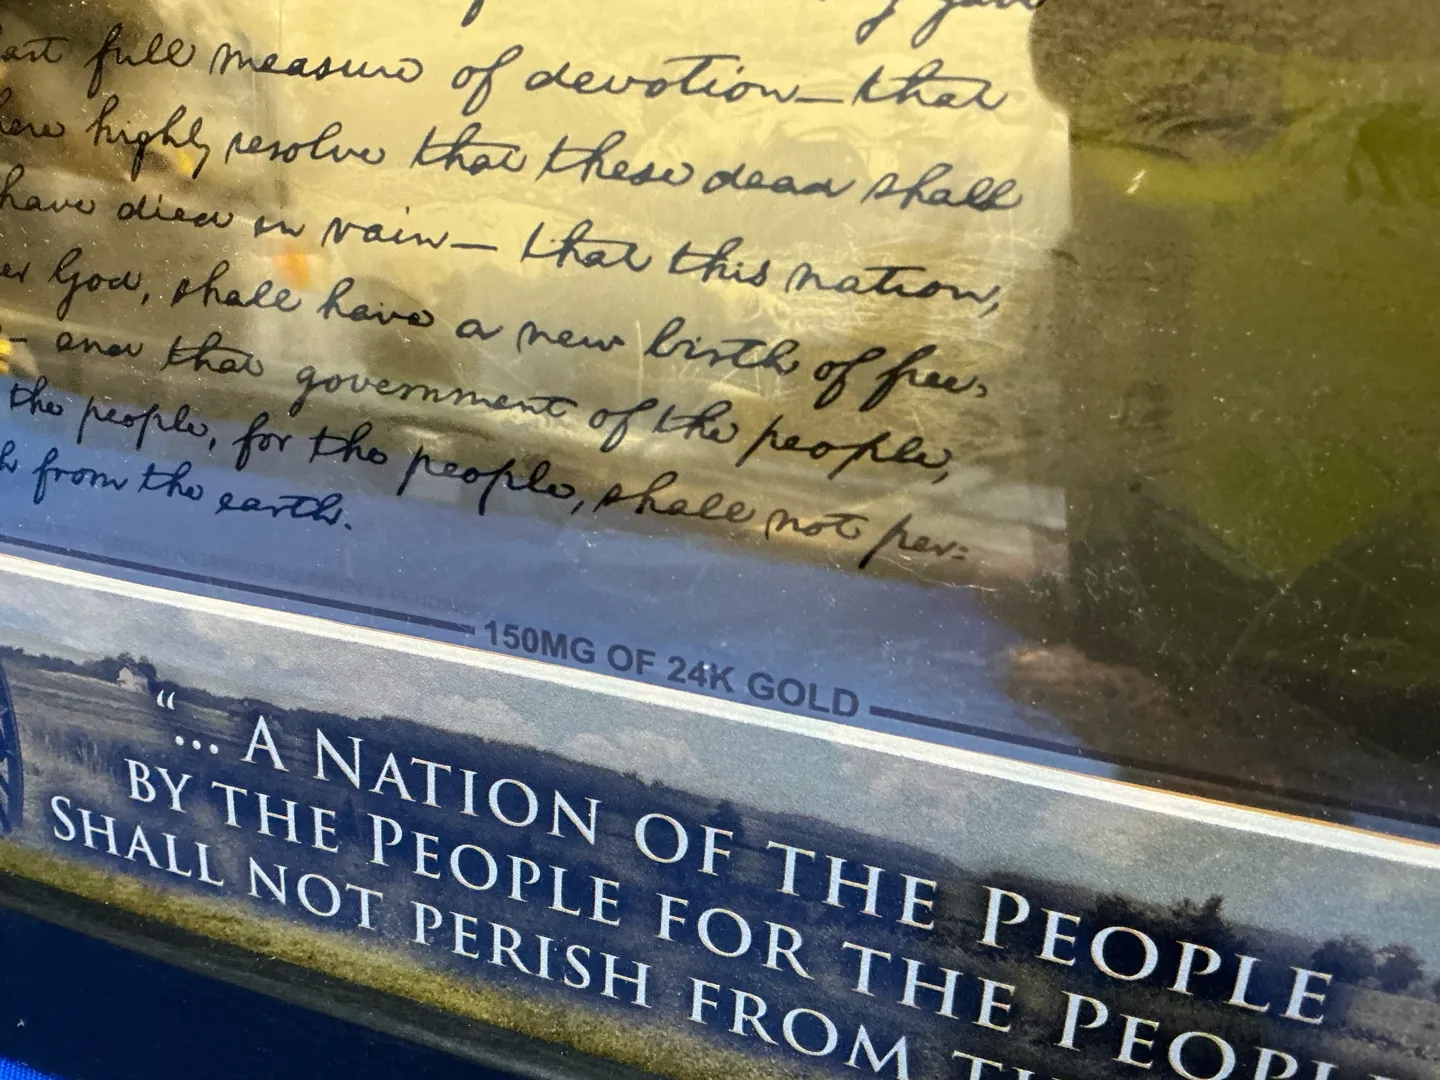 full measure of devotion—that
highly resolve that these dead shall
have died in vain— that this nation,
God, shall have a new birth of free=
— and that government of the people,
the people, for the people, shall not per=
from the earth.
150MG OF 24K GOLD
“... A NATION OF THE PEOPLE
BY THE PEOPLE FOR THE PEOPL
SHALL NOT PERISH FROM